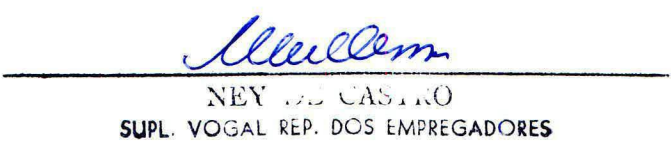 NEY DE CASTRO
SUPL. VOGAL REP. DOS EMPREGADORES